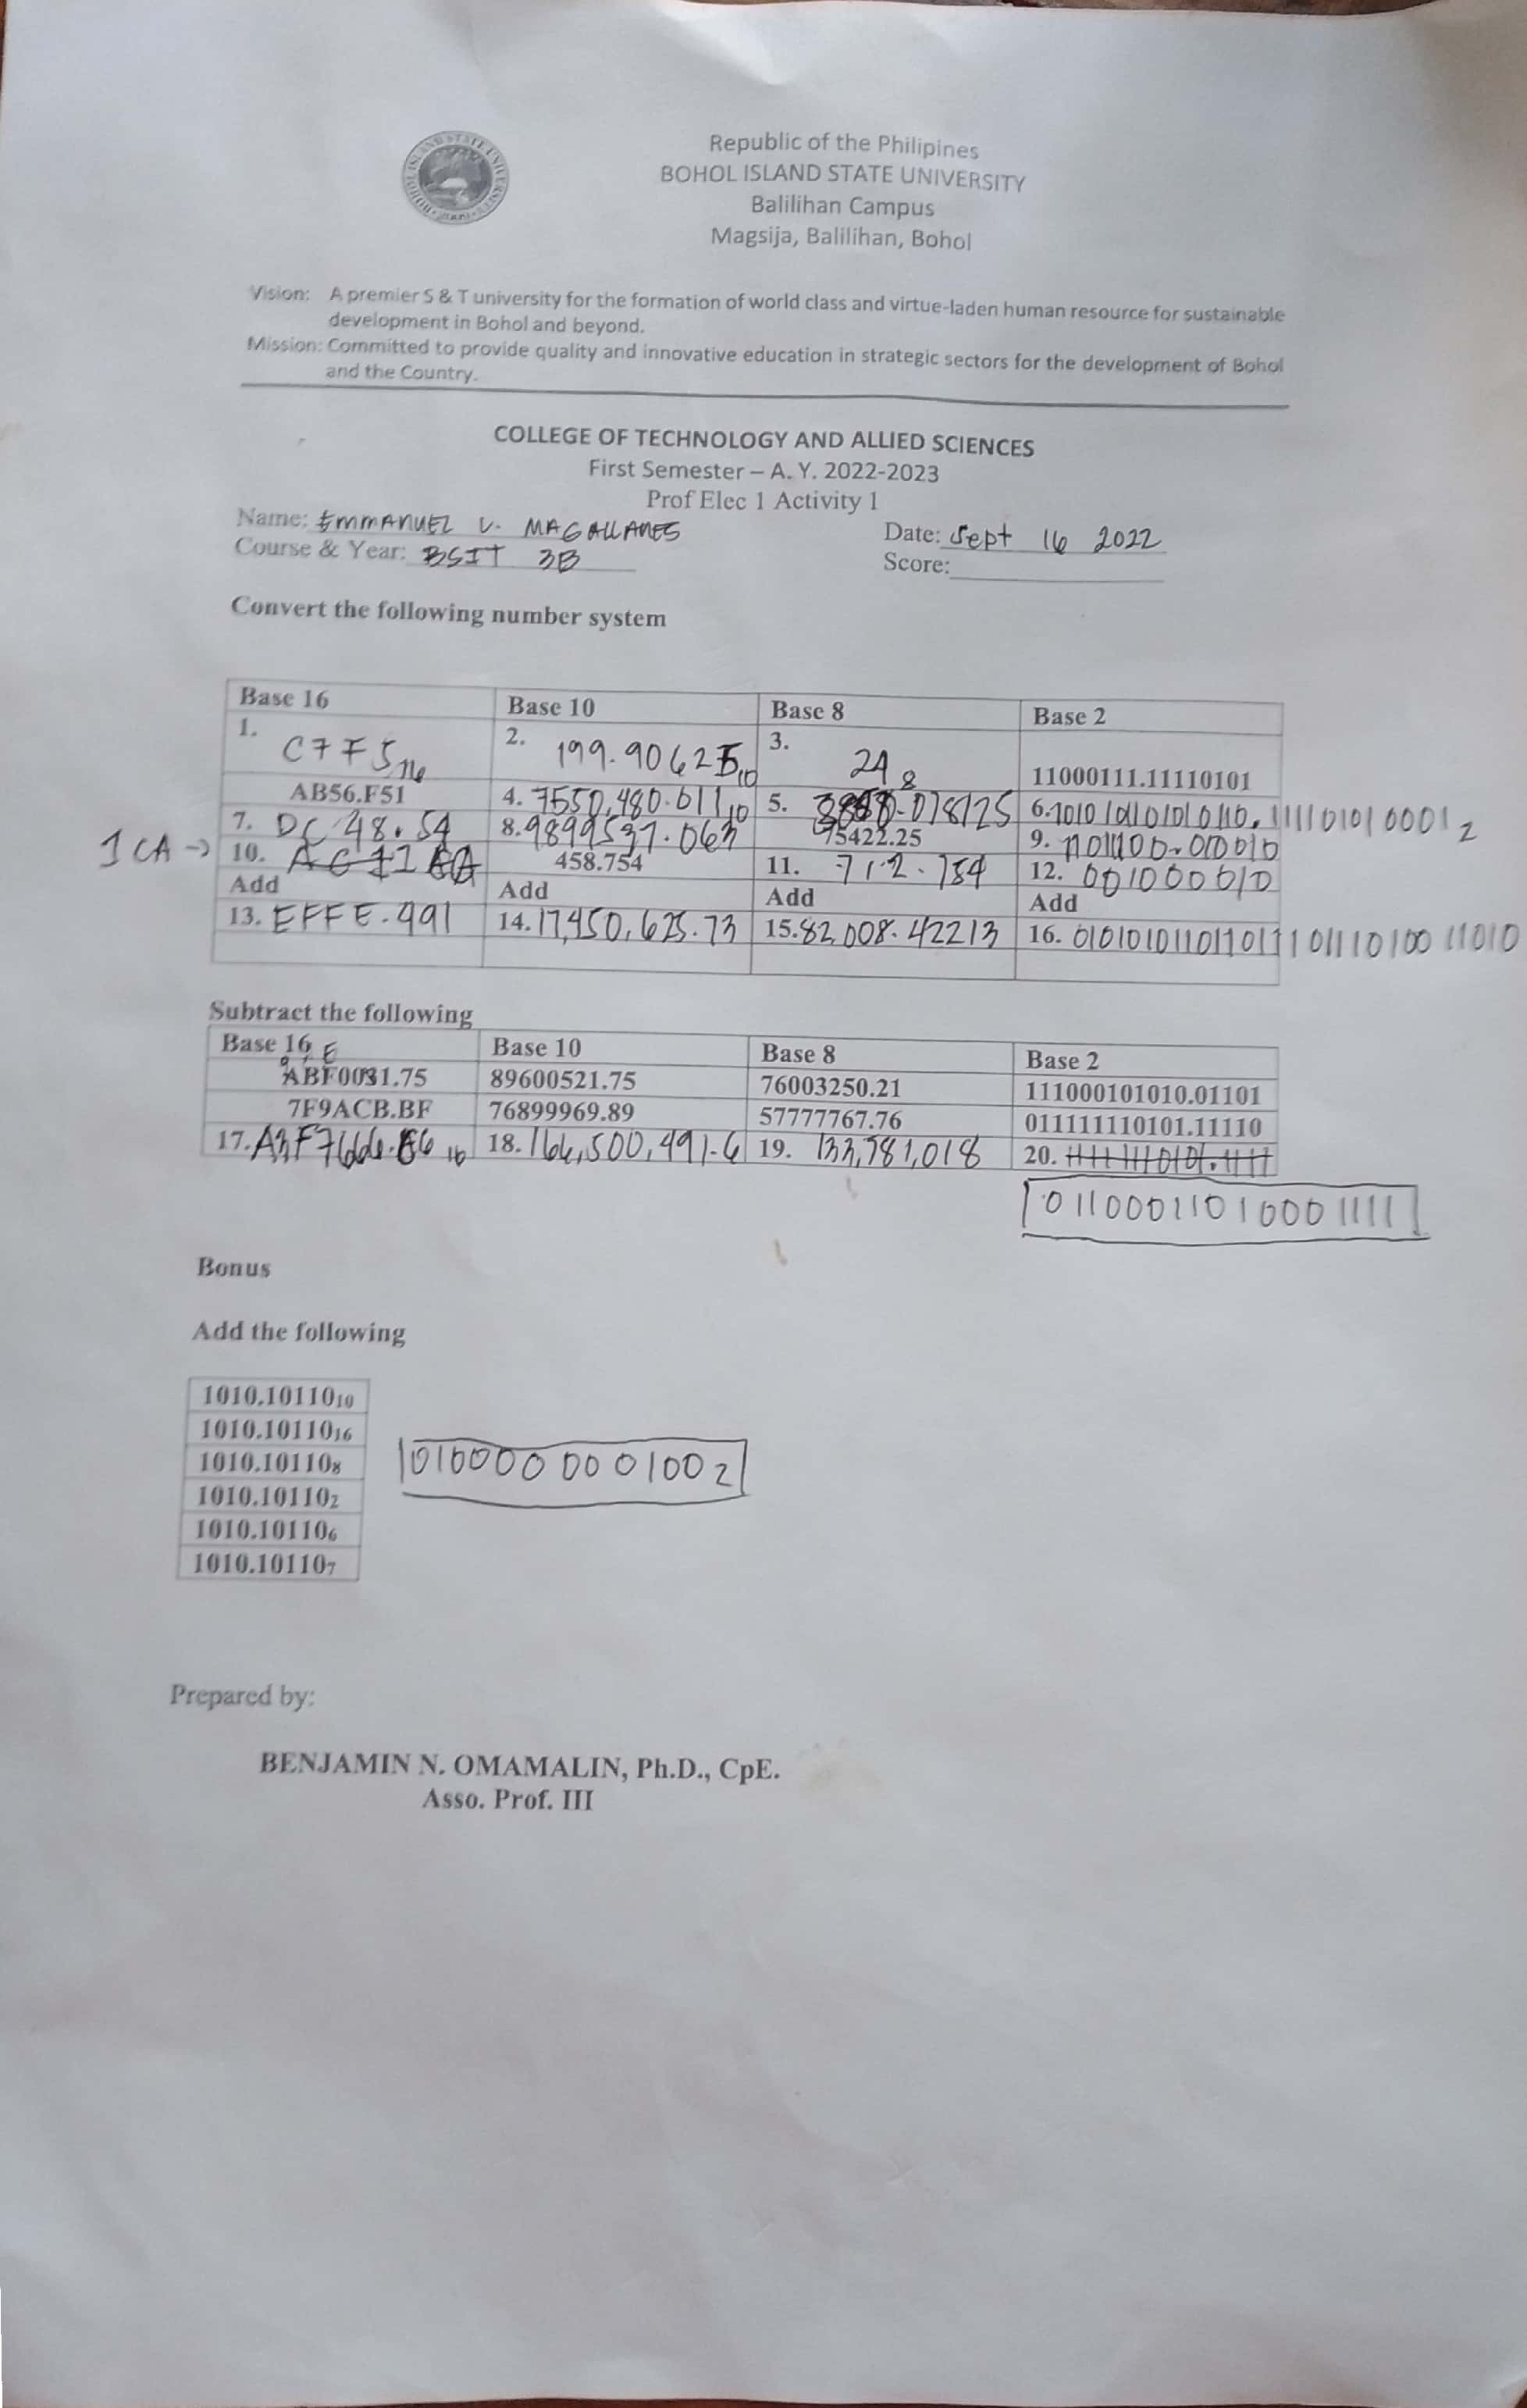 Republic of the Philipines
BOHOL ISLAND STATE UNIVERSITY
Balilihan Campus
Magsija, Balilihan, Bohol
Vision: A premier S & T university for the formation of world class and virtue-laden human resource for sustainable
development in Bohol and beyond.
Mission: Committed to provide quality and innovative education in strategic sectors for the development of Bohol
and the Country.
COLLEGE OF TECHNOLOGY AND ALLIED SCIENCES
First Semester – A. Y. 2022-2023
Prof Elec 1 Activity 1
Name: EMMANUEL V. MAGALLANES Date: Sept 16 2022
Course & Year: BSIT 3B Score:
Convert the following number system
Base 16 Base 10 Base 8 Base 2
1. C7F5₁₆ 2. 199.90625₁₀ 3. 24₈ 11000111.11110101
AB56.F51 4. 7550,480.611₁₀ 5. .078125 6. 1010101101010110.111101010001₂
7. DC48.54 8. 9899537.063 75422.25 9. 1101100.010010
1CA → 10. 458.754 11. 712.754 12. 001000010
Add Add Add Add
13. EFFE.991 14. 17,450,625.73 15. 82,008.42213 16. 0101010110110111011101001 1010
Subtract the following
Base 16 Base 10 Base 8 Base 2
9 E
ABF0031.75 89600521.75 76003250.21 111000101010.01101
7F9ACB.BF 76899969.89 57777767.76 011111110101.11110
17. A3F7666.B6₁₆ 18. 166,500,491.6 19. 133,781,018 20.
01100011010001111
Bonus
Add the following
1010.10110₁₀
1010.10110₁₆
1010.10110₈
1010.10110₂
1010.10110₆
1010.10110₇
010000 000100₂
Prepared by:
BENJAMIN N. OMAMALIN, Ph.D., CpE.
Asso. Prof. III